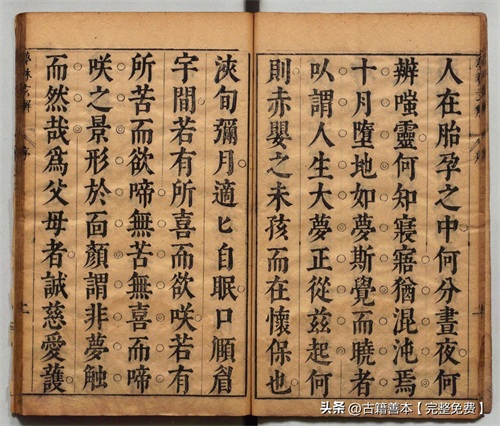 人在胎孕之中何分晝夜何
辨嗤靈何知寢寤猶混沌焉
十月墮地如夢斯覺而曉者
㕥謂人生大夢正從茲起何
則赤嬰之未孩而在懷保也
浹旬彌月適匕自眠口頤眉
宇間若有所喜而欲咲若有
所苦而欲啼無苦無喜而啼
咲之景形於面顏謂非夢觸
而然哉爲父母者誠慈愛護
夢林玄解
序
头条 @古籍善本【完整免费】